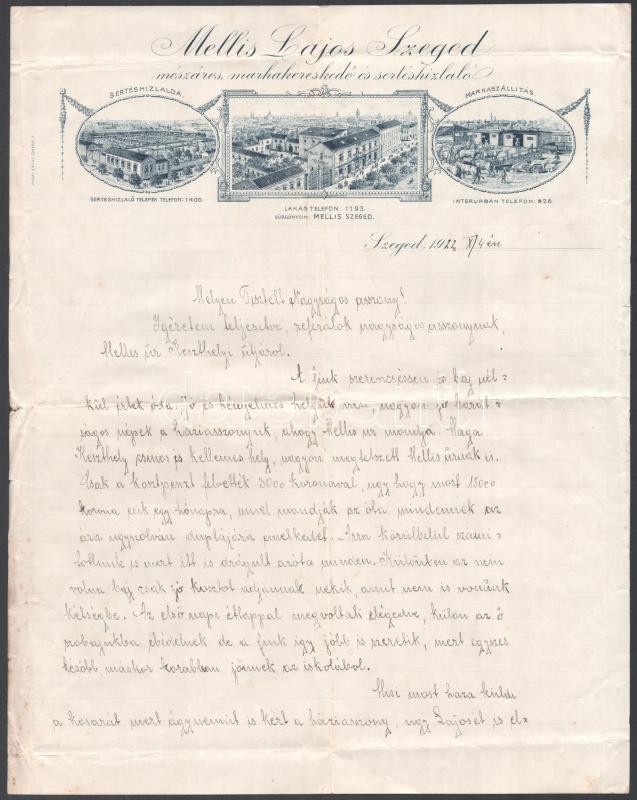 Mellis Lajos Szeged
mészáros, marhakereskedő és sertéshizlaló
SERTÉSHIZLALDA.
MARHASZÁLLITÁS.
SERTÉSHIZLALÓ TELEPEK TELEFON: 1-400.
LAKÁS TELEFON: 1193.
SÜRGÖNYCIM: MELLIS SZEGED.
INTERURBAN TELEFON: 826.
Szeged, 1922 X/4 én
Mélyen Tisztelt Nagyságos asszony!
Igéretem teljesitve, referálok nagyságos asszonynak,
Mellis úr Keszthelyi útjáról.
A fiuk szerencséssen és baj nél-
kül értek oda. Jó és kényelmes helyük van, nagyon jó barát-
ságos népek a háziasszonyuk, ahogy Mellis úr mondja. Maga
Keszthely csinos és kellemes hely, nagyon megtetszett Mellis úrnak is.
Csak a kosztpénzt felvették 3000 koronával, ugy hogy most 15000
korona esik egy hónapra, mivel mondják az óta mindennek az
ára ugyszolván duplájára emelkedet. Arra körülbelül számi-
tottunk is mert itt is drágult azóta minden. Különben az nem
volna baj csak jó kosztot adjannak nekik, amit nem is vonunk
kétségbe. Az első napi étlappal megvoltak elégedve, külön az ő
szobájukba ebédelnek de a fiuk igy jobb is szeretik, mert egyszer
később máskor korabban jönnek az iskolából.
Misi most haza küldi
a kosarát mert ágynemüt is kért a háziasszony, ugy Lajosét is el-